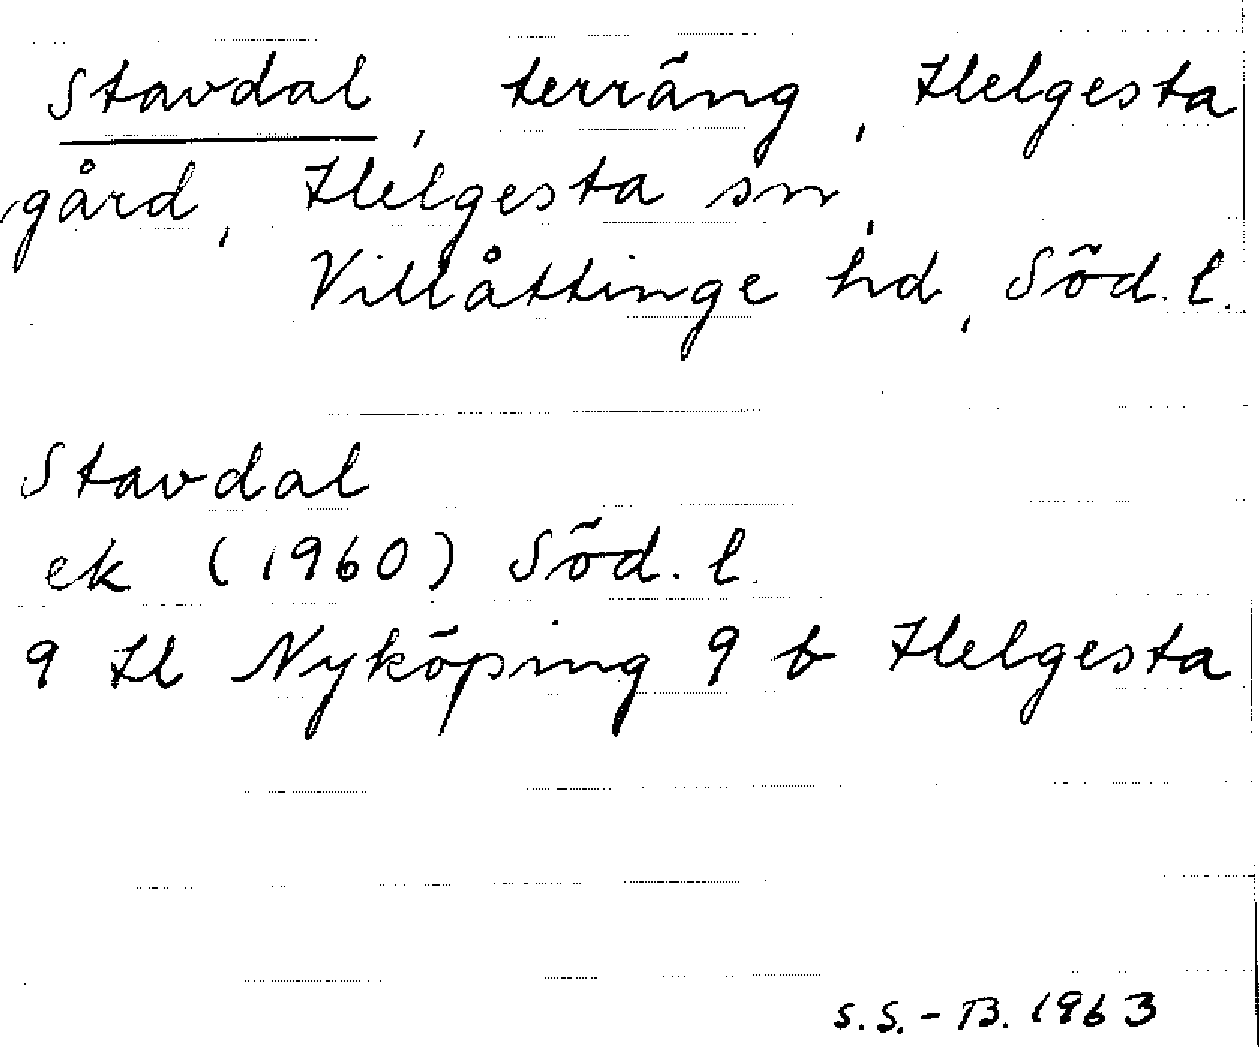 Stavdal, terräng, Helgesta
gård, Helgesta sn,
Villåttinge hd, Söd. l.
Stavdal
ek (1960) Söd. l.
9 H Nyköping 9 b Helgesta
S.S.-B. 1963